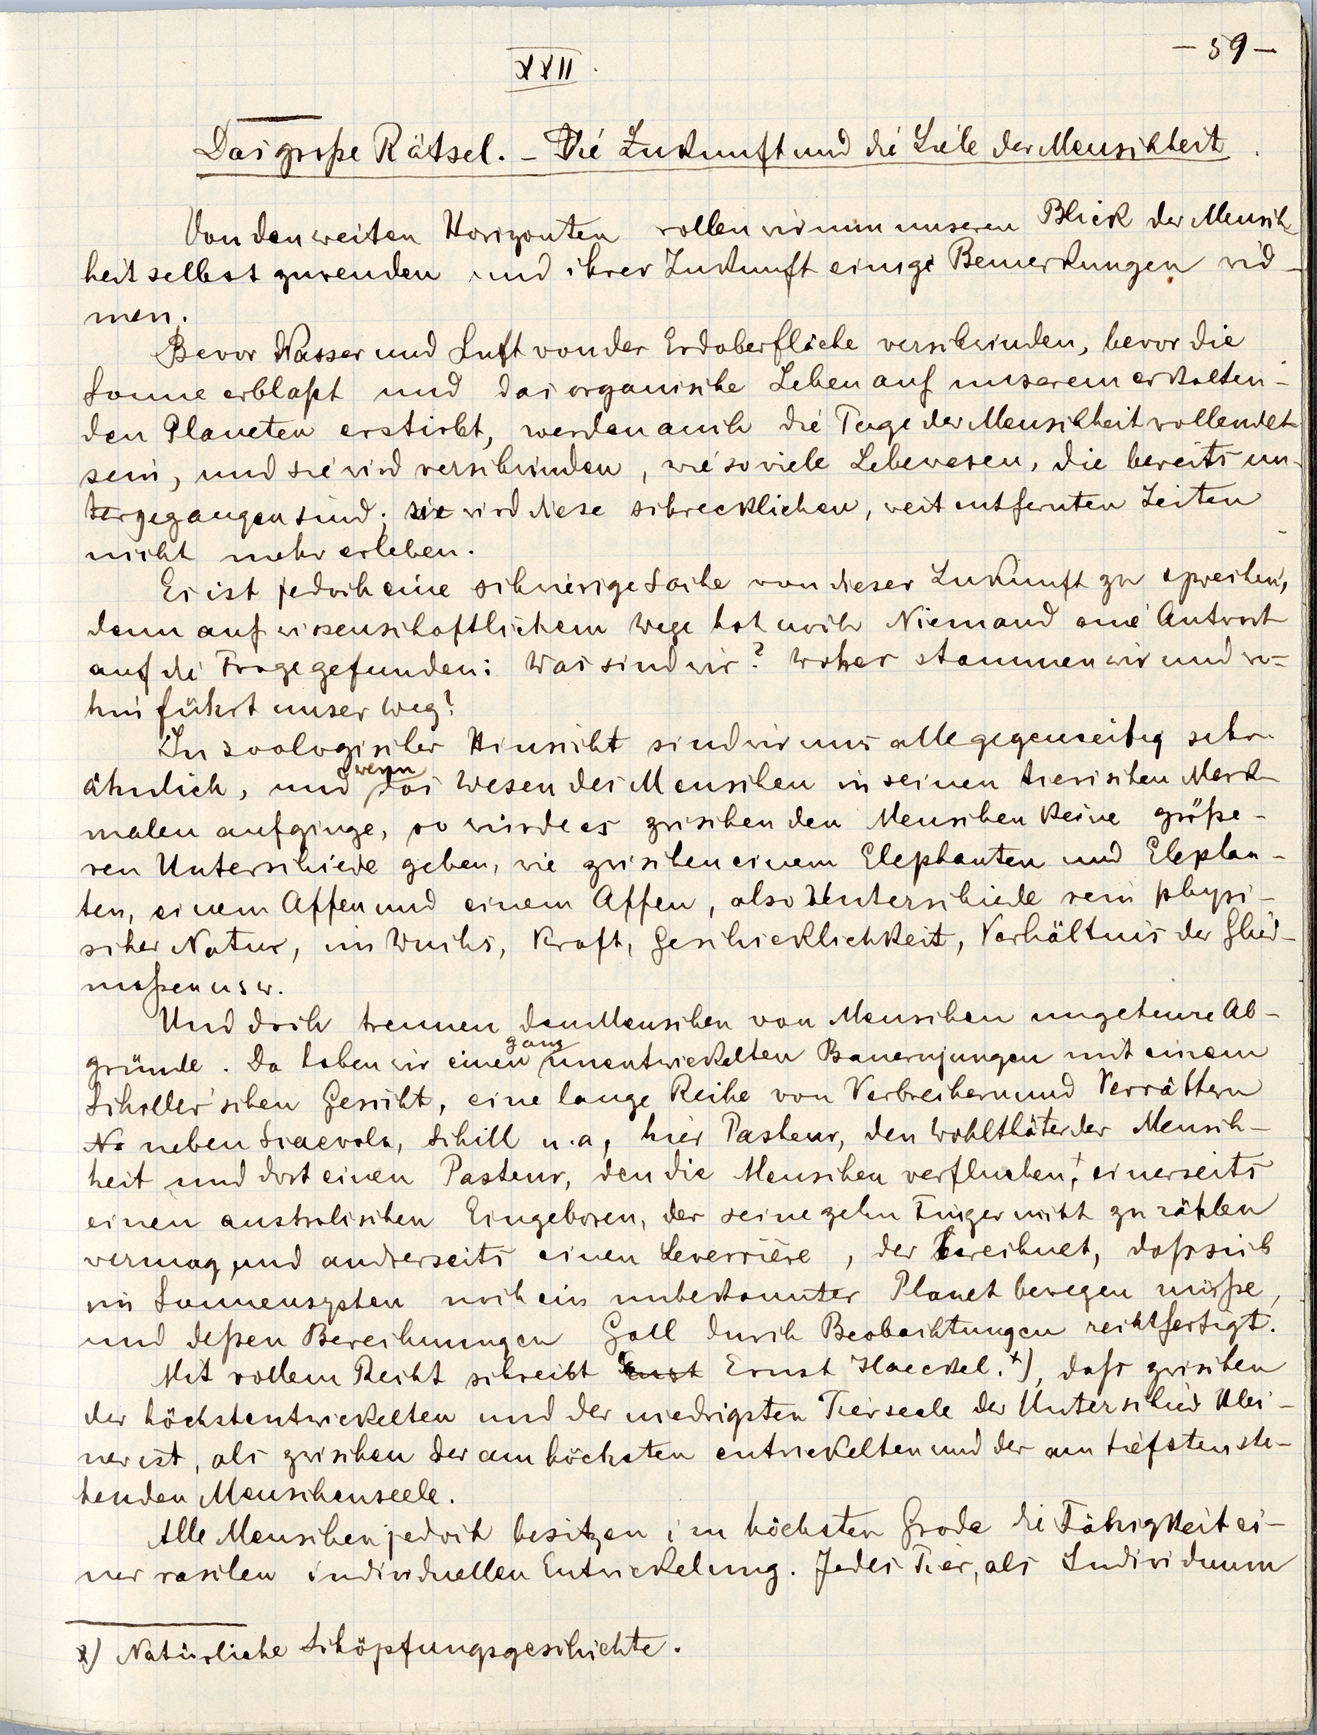 – 59 –
XXII.
Das große Rätsel. – Die Zukunft und die Ziele der Menschheit.
Von den weiten Horizonten wollen wir nun unseren Blick der Mensch-
heit selbst zuwenden und ihrer Zukunft einige Bemerkungen wid-
men.
Bevor Wasser und Luft von der Erdoberfläche verschwinden, bevor die
Sonne erblaßt und das organische Leben auf unserem erkalten-
den Planeten erstirbt, werden auch die Tage der Menschheit vollendet
sein, und sie wird verschwinden, wie so viele Lebewesen, die bereits un-
tergegangen sind; sie wird diese schrecklichen, weit entfernten Zeiten
nicht mehr erleben.
Es ist jedoch eine schwierige Sache von dieser Zukunft zu sprechen,
denn auf wissenschaftlichem Wege hat noch Niemand eine Antwort
auf die Frage gefunden: Was sind wir? Woher stammen wir und wo-
hin führt unser Weg?
In zoologischer Hinsicht sind wir uns alle gegenseitig sehr
ähnlich, und wenn das Wesen des Menschen in seinen tierischen Merk-
malen aufginge, so würde es zwischen den Menschen keine größe-
ren Unterschiede geben, wie zwischen einem Elephanten und Elephan-
ten, einem Affen und einem Affen, also Unterschiede rein physi-
scher Natur, im Wuchs, Kraft, Geschicklichkeit, Verhältnis der Glied-
maßen usw.
Und doch trennen den Menschen von Menschen ungeheure Ab-
gründe. Da haben wir einen ganz unentwickelten Bauernjungen mit einem
Schiller'schen Gesicht, eine lange Reihe von Verbrechern und Verrättern
neben Scaevola, Schill u.a., hier Pasteur, den Wohlthäter der Mensch-
heit und dort einen Pasteur, den die Menschen verfluchen, einerseits
einen australischen Eingeboren, der seine zehn Finger nicht zu zählen
vermag und andrerseits einen Leverrière, der berechnet, daß sich
im Sonnensysten noch ein unbekannter Planet bewegen müße,
und deßen Berechnungen Gall durch Beobachtungen rechtfertigt.
Mit vollem Recht schreibt Ernst Haeckel.x), daß zwischen
der höchstentwickelten und der niedrigsten Tierseele der Unterschied klei-
ner ist, als zwischen der am höchsten entwickelten und der am tiefsten ste-
henden Menschenseele.
Alle Menschen jedoch besitzen im höchsten Grade die Fähigkeit ei-
ner raschen individuellen Entwickelung. Jedes Tier, als Individuum
x) Natürliche Schöpfungsgeschichte.